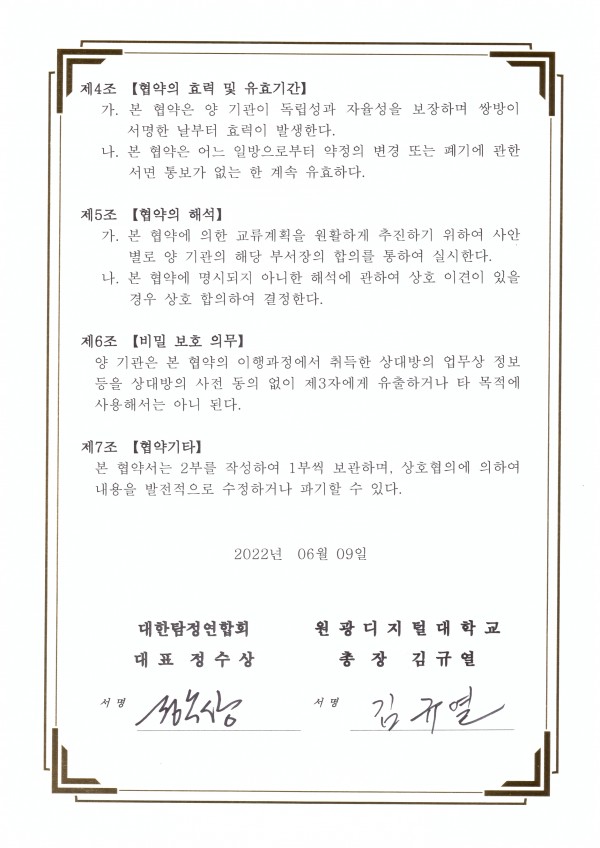 제4조 【협약의 효력 및 유효기간】
가. 본 협약은 양 기관이 독립성과 자율성을 보장하며 쌍방이
서명한 날부터 효력이 발생한다.
나. 본 협약은 어느 일방으로부터 약정의 변경 또는 폐기에 관한
서면 통보가 없는 한 계속 유효하다.
제5조 【협약의 해석】
가. 본 협약에 의한 교류계획을 원활하게 추진하기 위하여 사안
별로 양 기관의 해당 부서장의 합의를 통하여 실시한다.
나. 본 협약에 명시되지 아니한 해석에 관하여 상호 이견이 있을
경우 상호 합의하여 결정한다.
제6조 【비밀 보호 의무】
양 기관은 본 협약의 이행과정에서 취득한 상대방의 업무상 정보
등을 상대방의 사전 동의 없이 제3자에게 유출하거나 타 목적에
사용해서는 아니 된다.
제7조 【협약기타】
본 협약서는 2부를 작성하여 1부씩 보관하며, 상호협의에 의하여
내용을 발전적으로 수정하거나 파기할 수 있다.
2022년 06월 09일
대한탐정연합회 원광디지털대학교
대표 정수상 총장 김규열
서명 정수상 서명 김규열